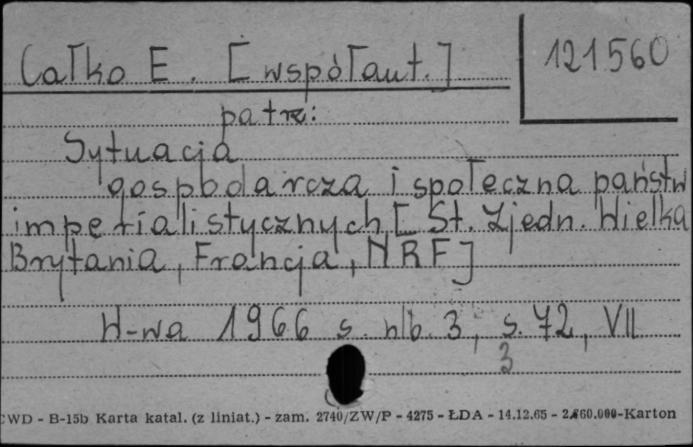 Całko E. [współaut.] 121560
patrz:
Sytuacja
gospodarcza i społeczna państw
imperialistycznych [St. Zjedn. Wielka
Brytania, Francja, NRF]
W-wa 1966 s. nlb. 3, s. 72, VII
3
CWD - B-15b Karta katal. (z liniat.) - zam. 2740/ZW/P - 4275 - ŁDA - 14.12.65 - 2.860.000-Karton